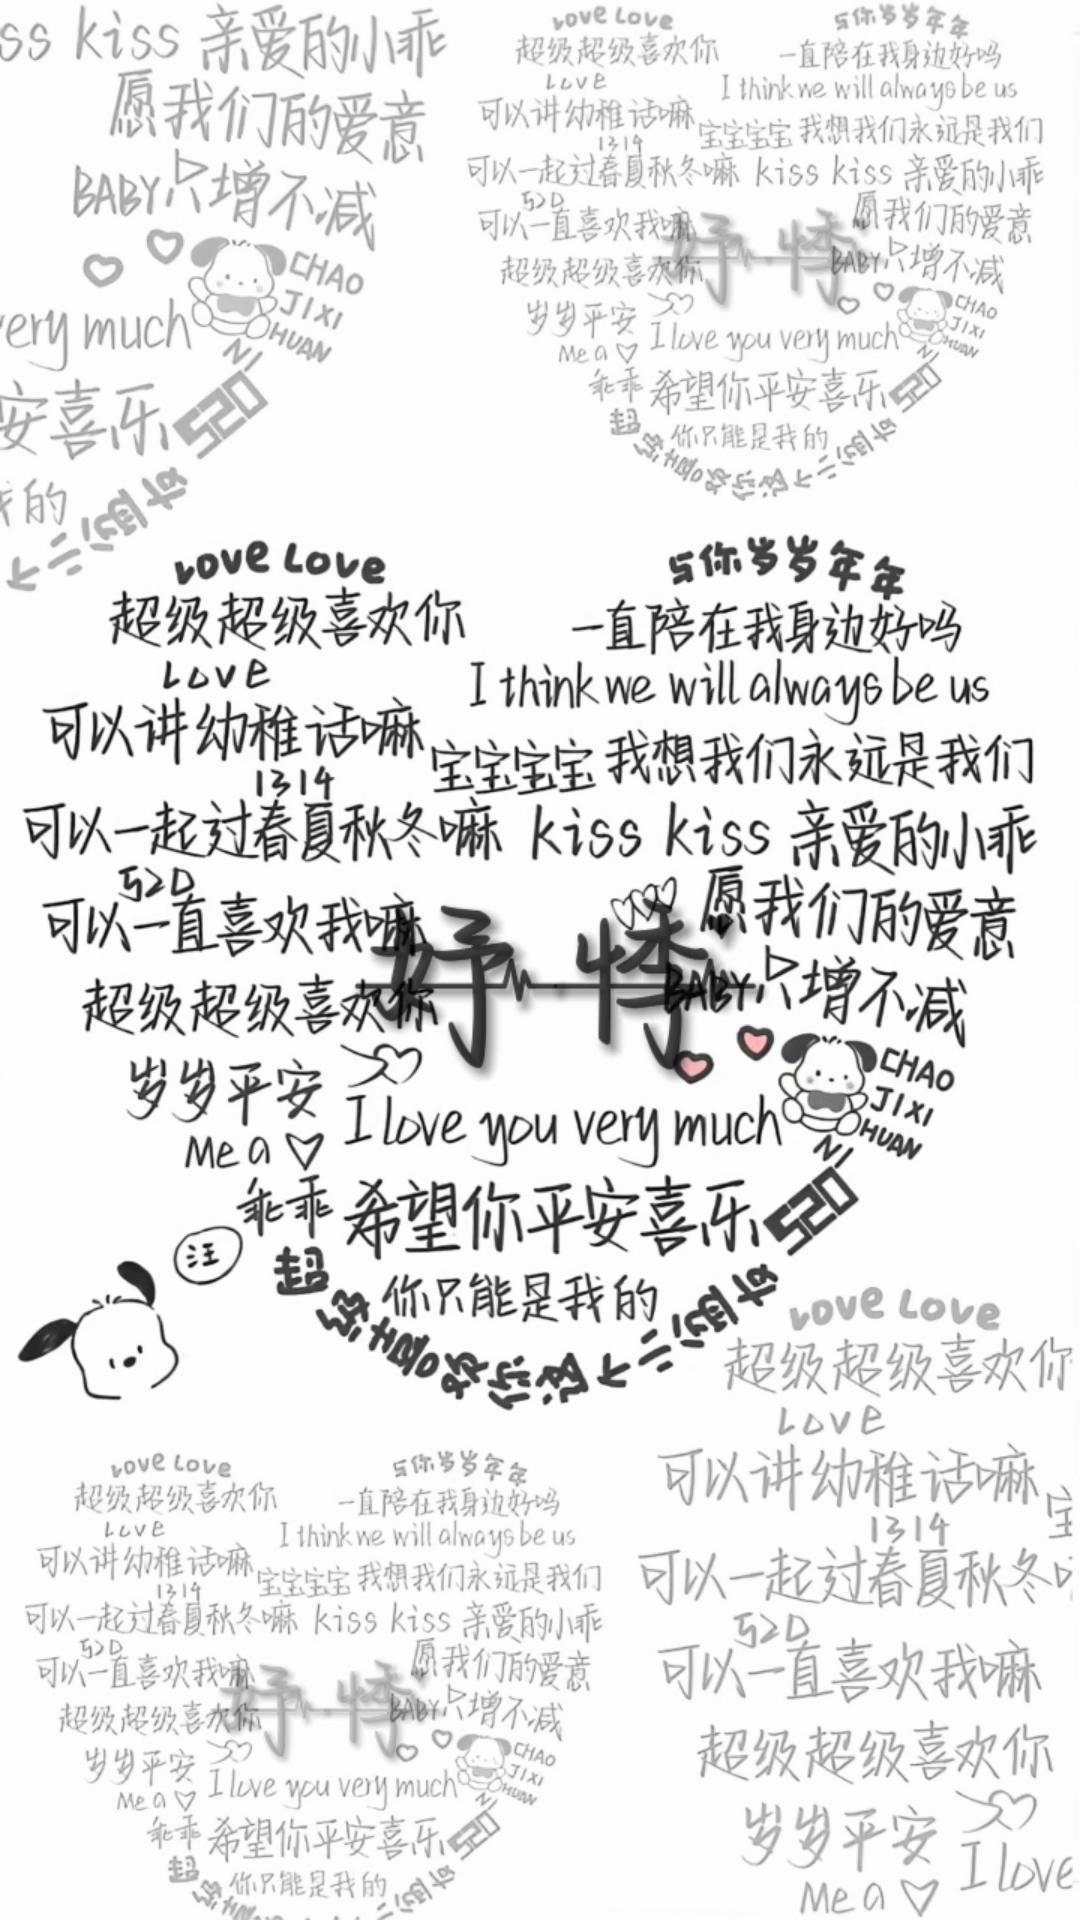 ss kiss 亲爱的小乖
愿我们的爱意
BABY只增不减
CHAO
JIXI
HUAN
NI
very much
安喜乐 520
我的
个二次可
Love Love
与你岁岁年年
超级超级喜欢你
一直陪在我身边好吗
Love
I think we will always be us
可以讲幼稚话嘛
宝宝宝宝 我想我们永远是我们
1314
可以一起过春夏秋冬嘛 kiss kiss 亲爱的小乖
520
可以一直喜欢我嘛
愿我们的爱意
妤 悸
BABY只增不减
超级超级喜欢你
岁岁平安
I love you very much
CHAO
JIXI
HUAN
NI
Me a
乖乖 希望你平安喜乐 520
你只能是我的
超级喜欢你这个
Love Love
与你岁岁年年
超级超级喜欢你
一直陪在我身边好吗
Love
I think we will always be us
可以讲幼稚话嘛
宝宝宝宝 我想我们永远是我们
1314
可以一起过春夏秋冬嘛 kiss kiss 亲爱的小乖
520
可以一直喜欢我嘛
愿我们的爱意
妤 悸
BABY只增不减
超级超级喜欢你
岁岁平安
I love you very much
CHAO
JIXI
HUAN
NI
Me a
乖乖 希望你平安喜乐 520
汪
你只能是我的
超级喜欢你这个
Love Love
超级超级喜欢你
Love
可以讲幼稚话嘛
宝
1314
可以一起过春夏秋冬
520
可以一直喜欢我嘛
超级超级喜欢你
岁岁平安
I love
Me a
Love Love
与你岁岁年年
超级超级喜欢你
一直陪在我身边好吗
Love
I think we will always be us
可以讲幼稚话嘛
宝宝宝宝 我想我们永远是我们
1314
可以一起过春夏秋冬嘛 kiss kiss 亲爱的小乖
520
可以一直喜欢我嘛
愿我们的爱意
妤 悸
BABY只增不减
超级超级喜欢你
岁岁平安
I love you very much
CHAO
JIXI
HUAN
NI
Me a
乖乖 希望你平安喜乐 520
你只能是我的
超